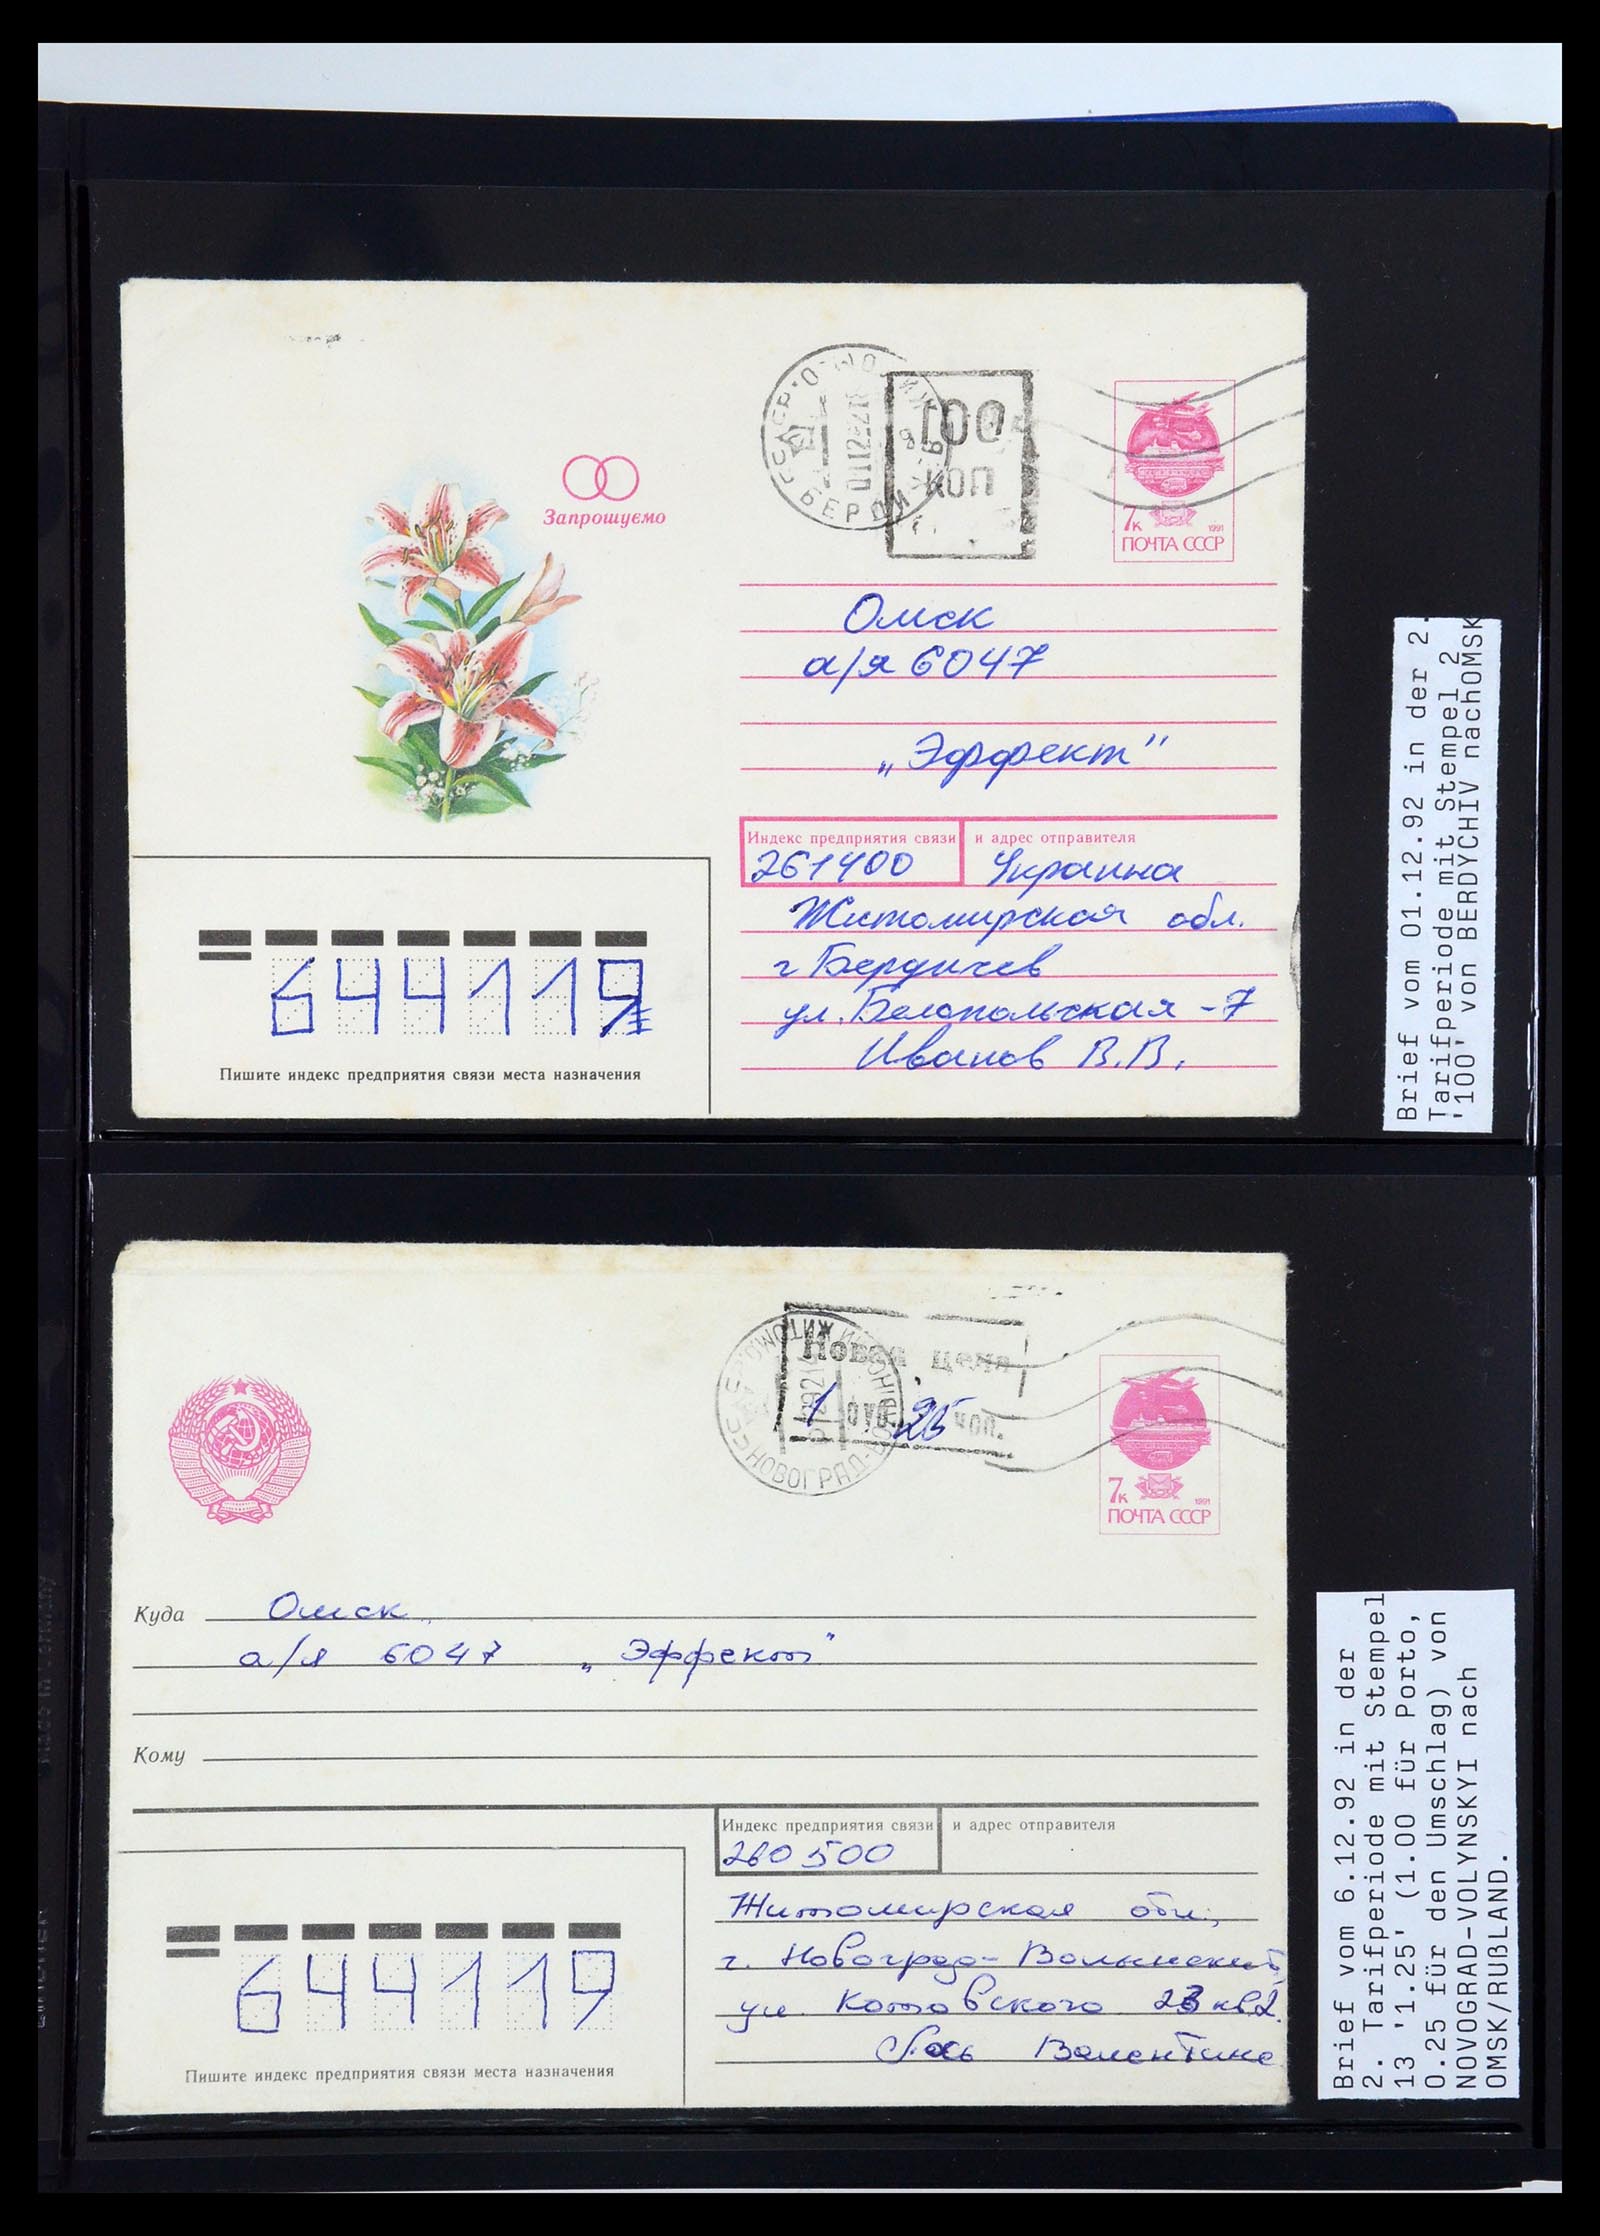 Запрошуємо
100
коп
БЕРДИ
7к
1991
ПОЧТА СССР
Омск
а/я 6047
„Эффект"
Индекс предприятия связи
и адрес отправителя
261400
Украина
Житомирская обл.
г Бердичев
ул. Белопольская -7
Иванов В.В.
644119
Пишите индекс предприятия связи места назначения
Brief vom 01.12.92 in der 2.
Tarifperiode mit Stempel 2
'100' von BERDYCHIV nachOMSK
Новая цена
1 25 коп.
НОВОГРАД-ВО
7к
1991
ПОЧТА СССР
Куда
Омск
а/я 6047 „Эффект"
Кому
Индекс предприятия связи
и адрес отправителя
260500
Житомирская обл,
г. Новоград-Волынский
ул. Котовского 23 кв2.
Валентине
644119
Пишите индекс предприятия связи места назначения
Brief vom 6.12.92 in der
2. Tarifperiode mit Stempel
13 '1.25' (1.00 für Porto,
0.25 für den Umschlag) von
NOVOGRAD-VOLYNSKYI nach
OMSK/RUßLAND.